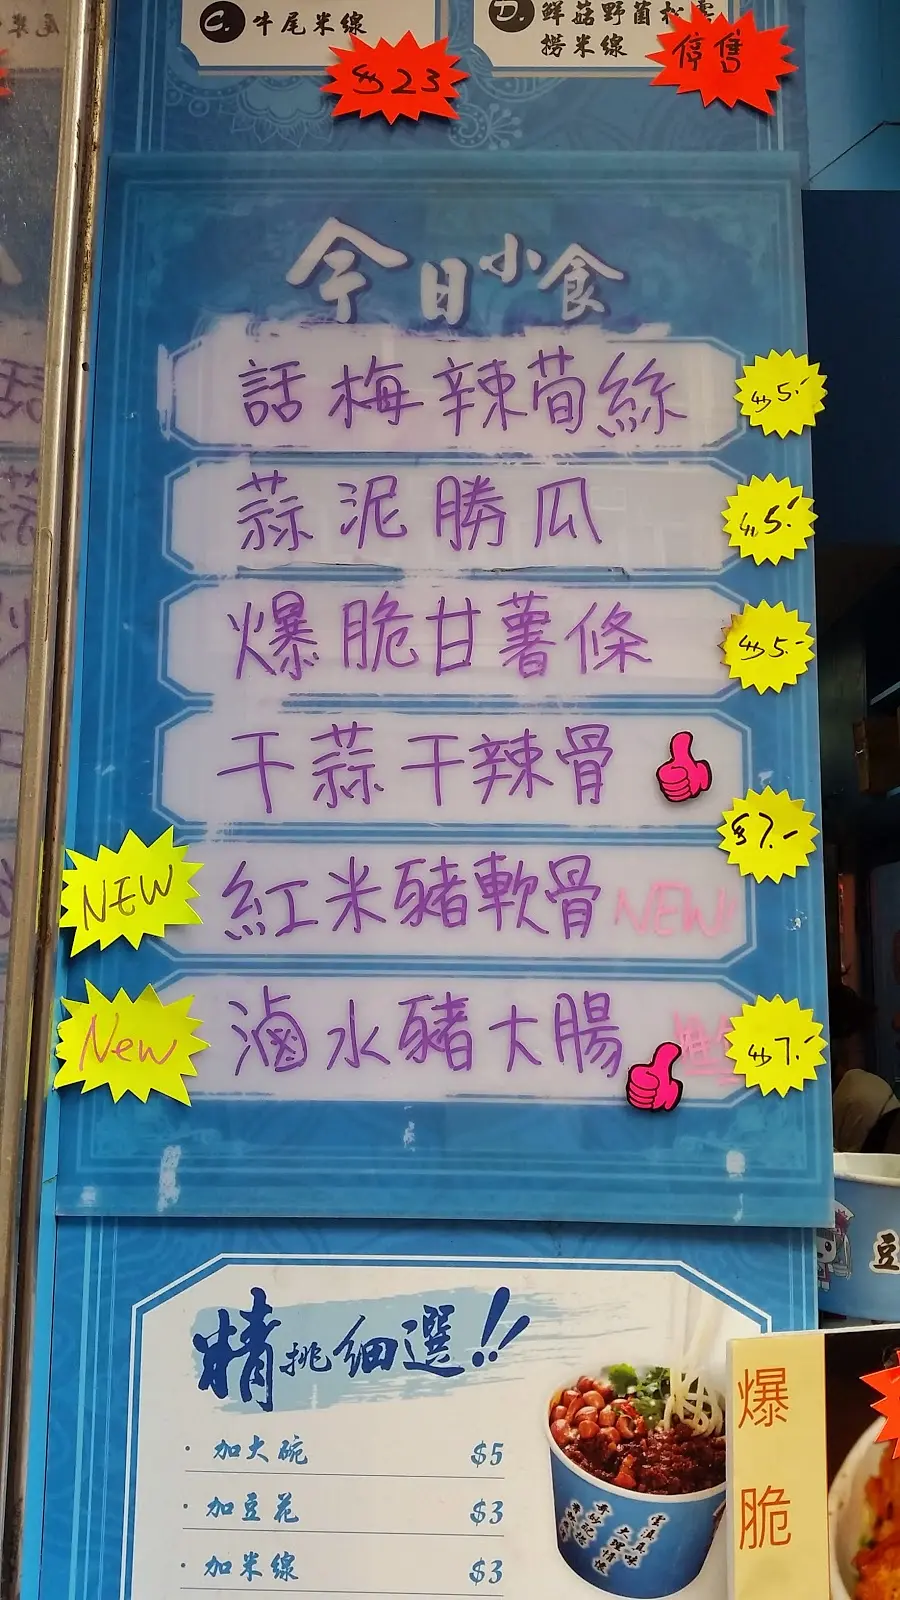 C. 牛尾米線
$23
D. 鮮菇野菌松露
撈米線
停售
今日小食
話梅辣荀絲 $5.-
蒜泥勝瓜 $5.-
爆脆甘薯條 $5.-
干蒜干辣骨
$7.-
NEW 紅米豬軟骨 NEW
New 滷水豬大腸 $7.-
精挑細選!!
· 加大碗 $5
· 加豆花 $3
· 加米線 $3
豆
爆
脆